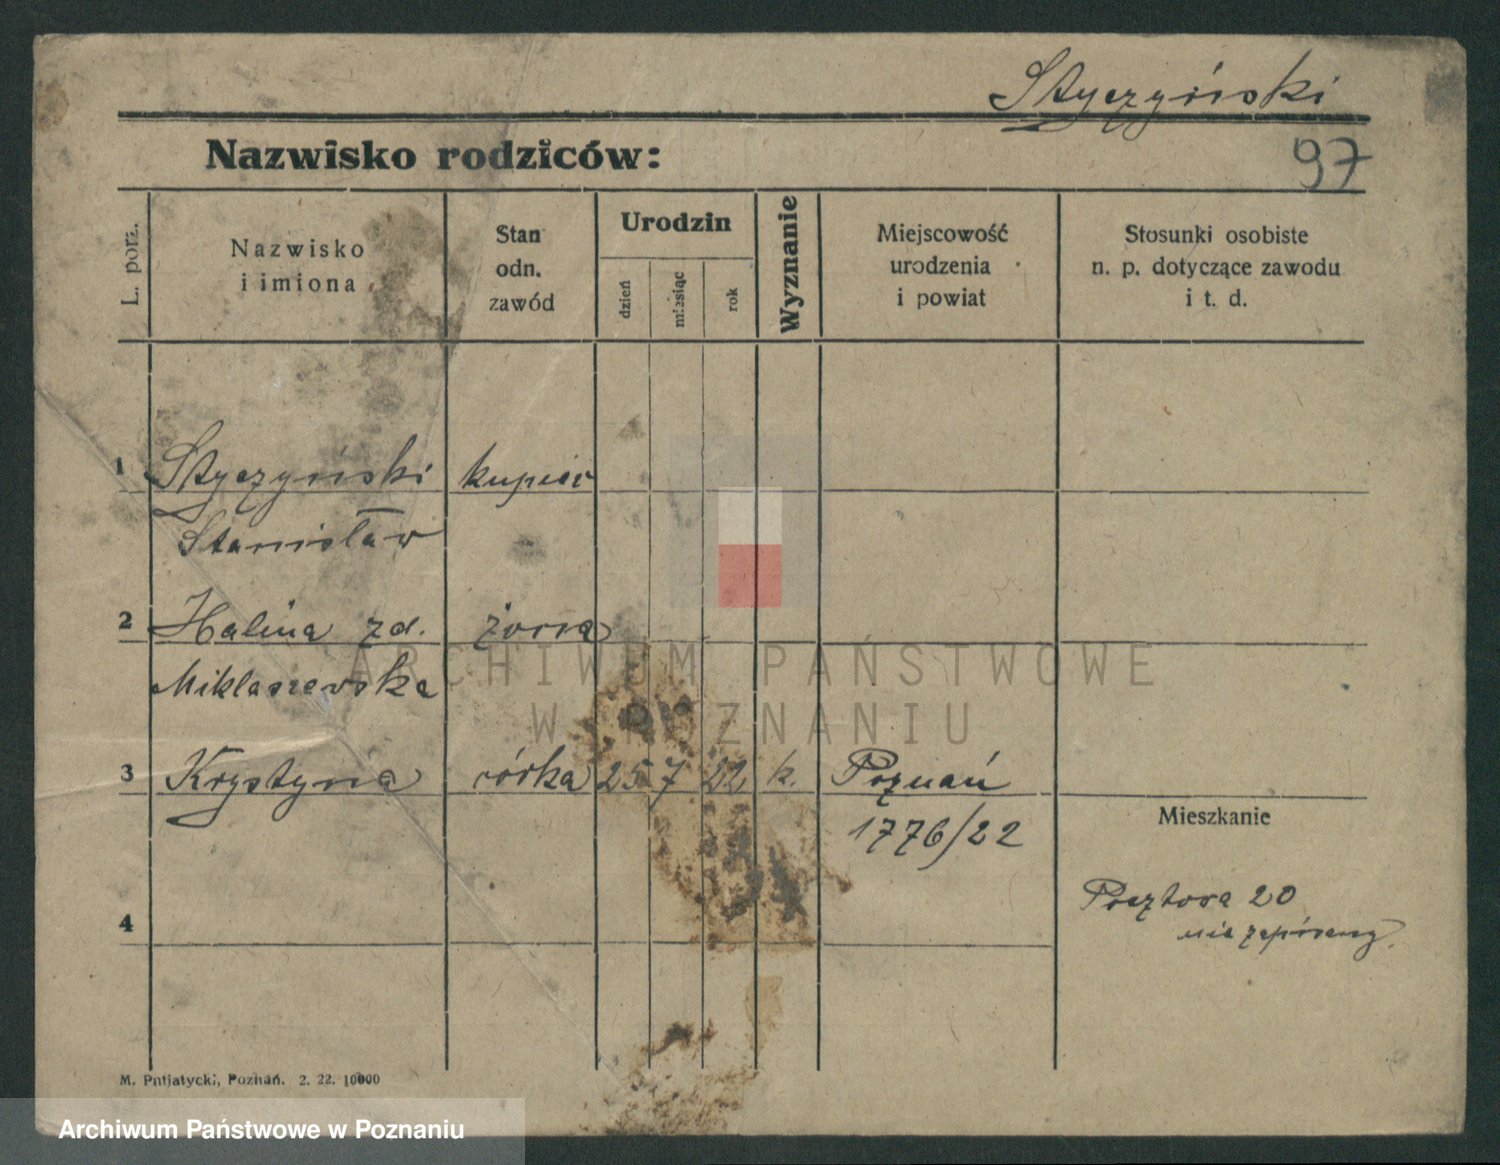 Styczyński
Nazwisko rodziców:
97
L. porz.
Nazwisko
i imiona
Stan
odn.
zawód
Urodzin
dzień
miesiąc
rok
Wyznanie
Miejscowość
urodzenia
i powiat
Stosunki osobiste
n. p. dotyczące zawodu
i t. d.
1 Styczyński kupiec
Stanisław
2 Halina zd. żona
Miklaszewska
3 Krystyna córka 25 7 22 k. Poznań
1776/22
Mieszkanie
Pocztowa 20
nie zapisany.
4
ARCHIWUM PAŃSTWOWE
W POZNANIU
M. Putiatycki, Poznań. 2. 22. 10000
Archiwum Państwowe w Poznaniu